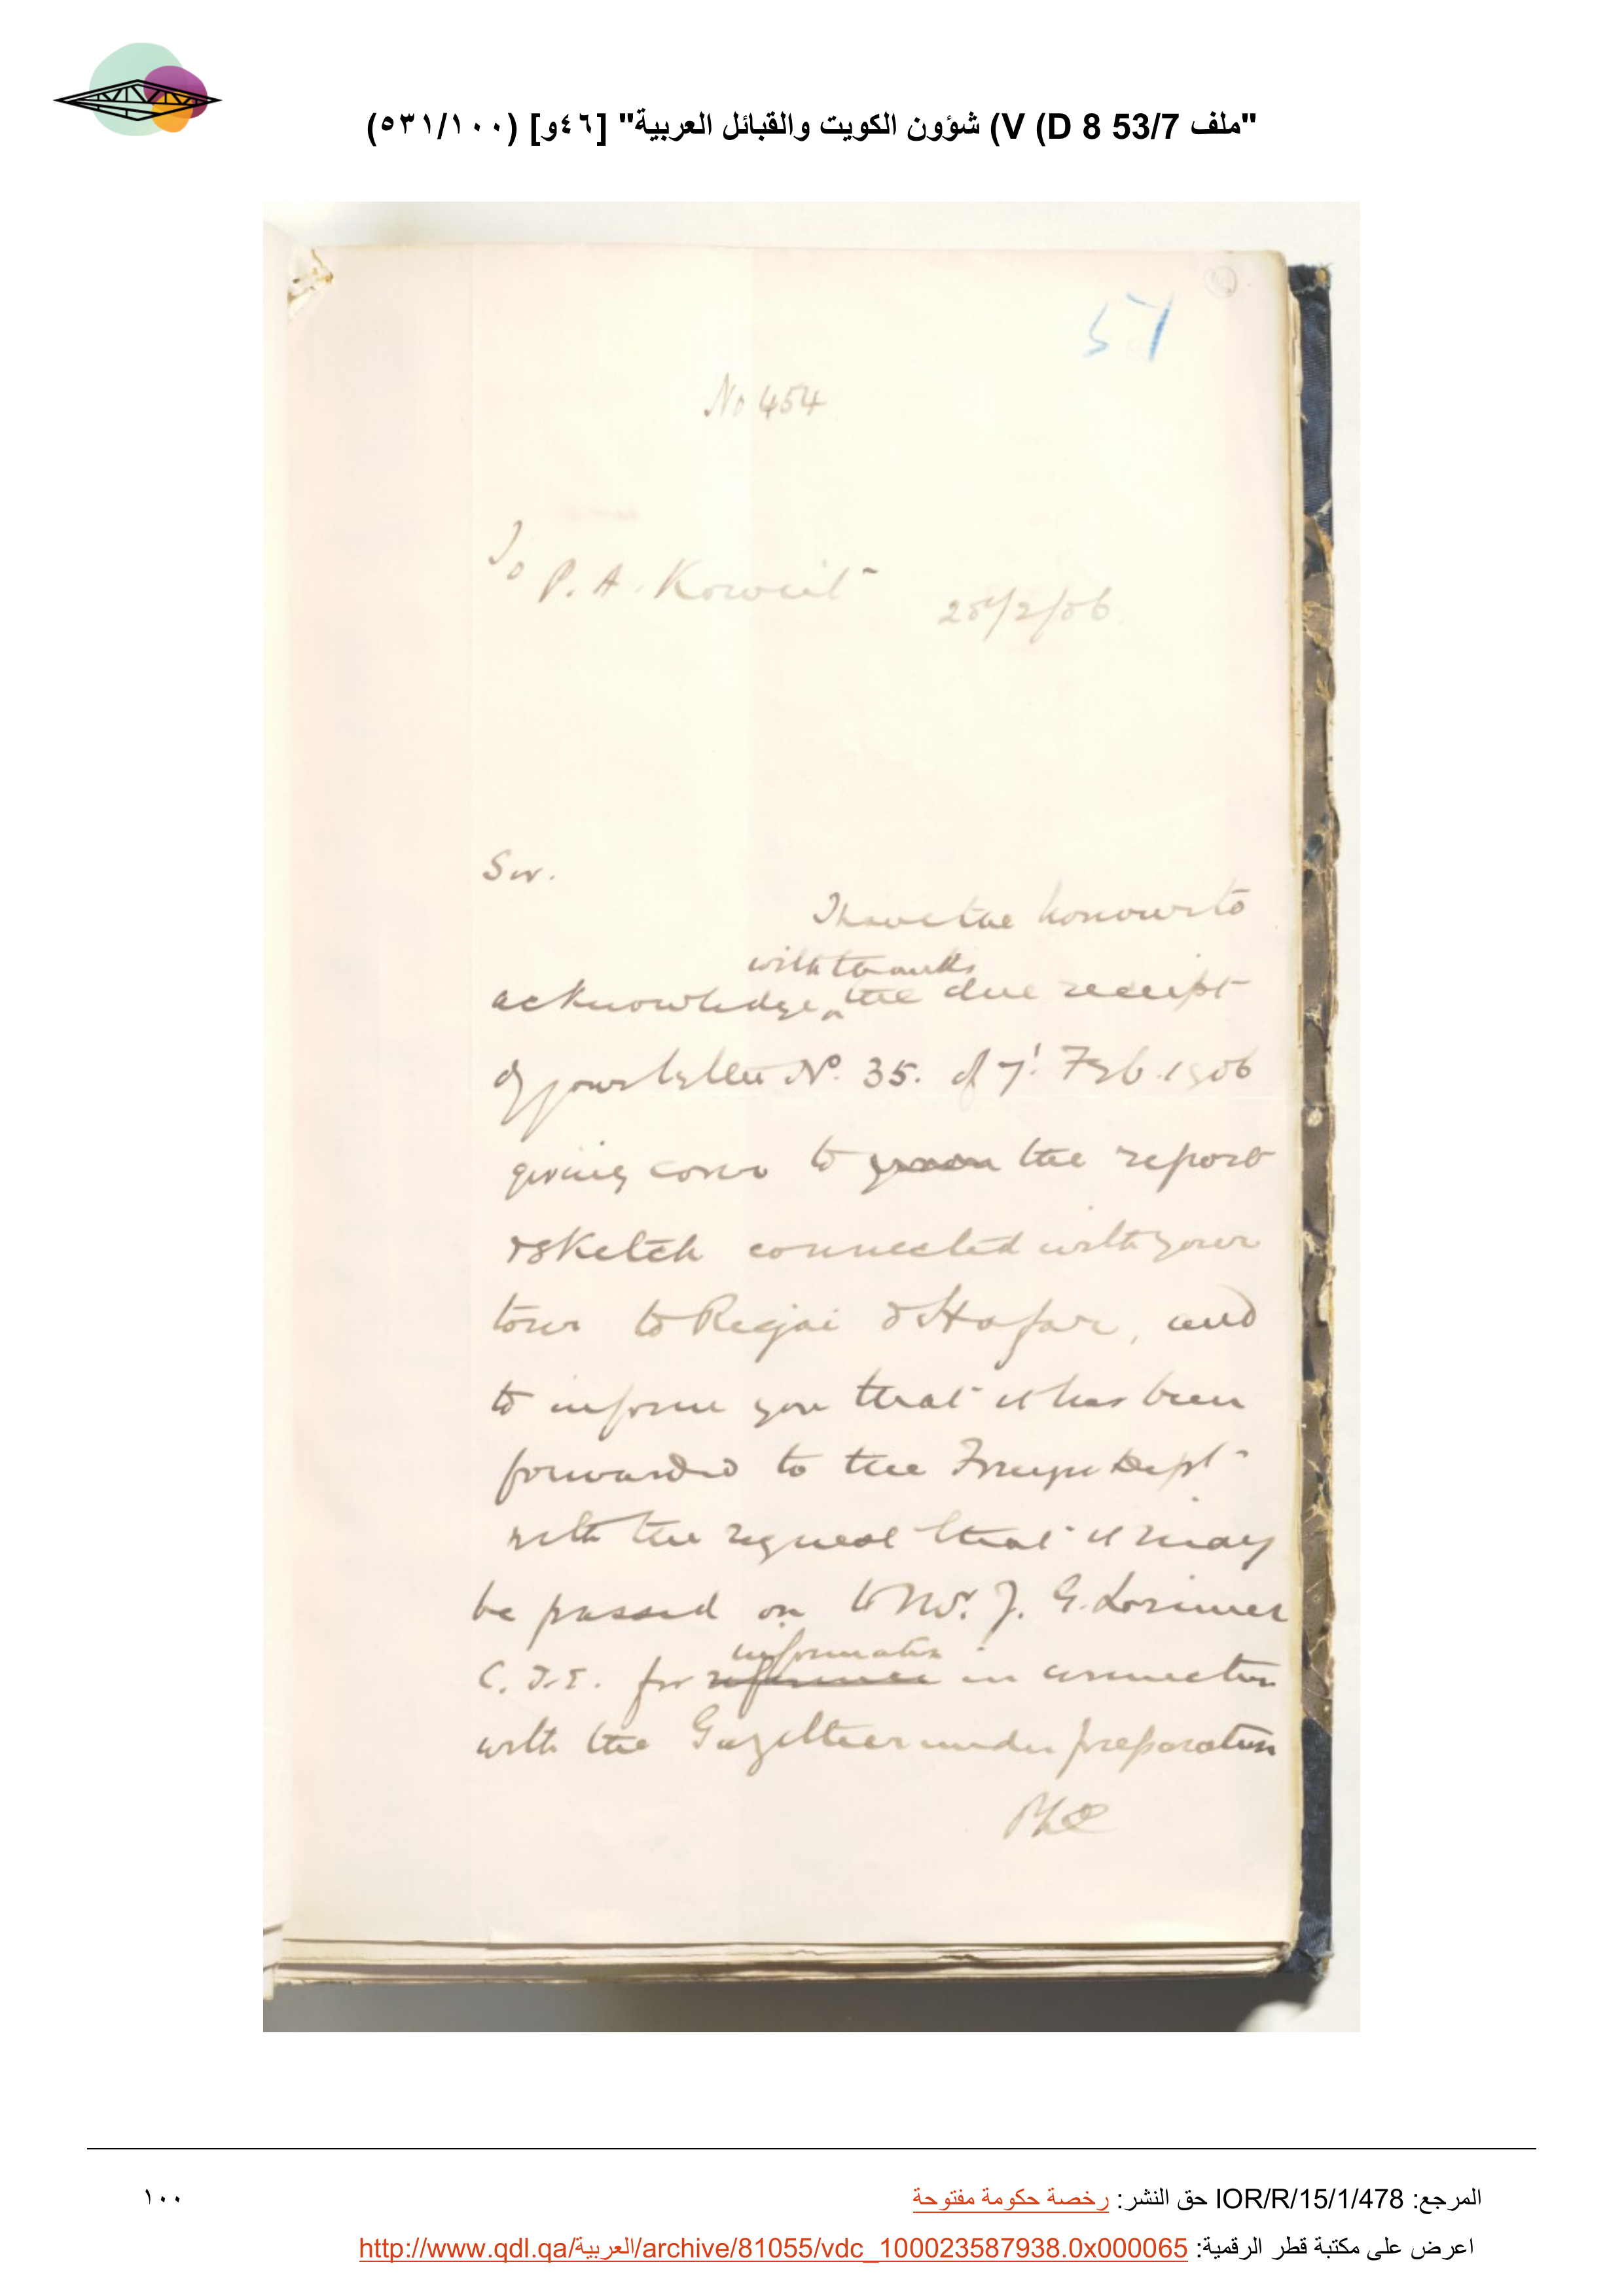 "ملف 53/7 D 8) V) شؤون الكويت والقبائل العربية" [٤٦و] (٥٣١/١٠٠)
57
No 454
To P. A. Koweit
25/2/06
Sir.
I have the honour to
with thanks
acknowledge the due receipt
of your letter No. 35. of 7' Feb. 1906
giving cover to the report
& sketch connected with your
tour to Regai & Hafar, and
to inform you that it has been
forwarded to the Foreign Dept
with the request that it may
be passed on to Mr. J. G. Lorimer
information
C.I.E. for reference in connection
with the Gazetteer under preparation
المرجع: IOR/R/15/1/478 حق النشر: رخصة حكومة مفتوحة
١٠٠
اعرض على مكتبة قطر الرقمية: http://www.qdl.qa/العربية/archive/81055/vdc_100023587938.0x000065